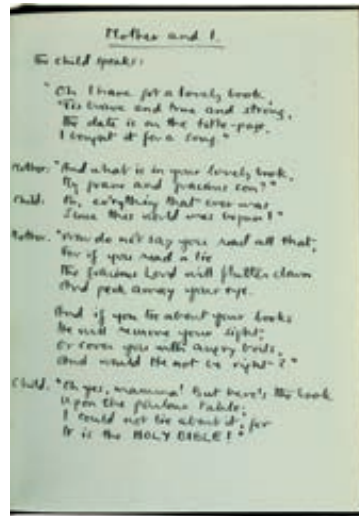 Mother and I.
The child speaks:
"Oh I have got a lovely book,
'Tis brave and true and strong,
The date is on the title-page,
I bought it for a song."
Mother. "And what is in your lovely book,
My brave and gracious son?"
Child. "Oh, everything that ever was
Since this world was begun!"
Mother. "Now do not say you read all that,
For if you read a lie
The gracious Lord will flutter down
And peck away your eye.
And if you lie about your books
He will remove your sight,
Or cover you with angry boils,
And would He not be right?"
Child. "Oh yes, mamma! But here's the book
Upon the parlour table;
I could not lie about it, for
It is the HOLY BIBLE!"